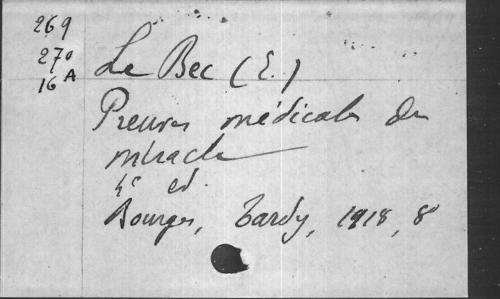 269
270
16 A
Le Bec (E.)
Preuves médicales du
miracle
4e ed.
Bourges, Tardy, 1918, 8°